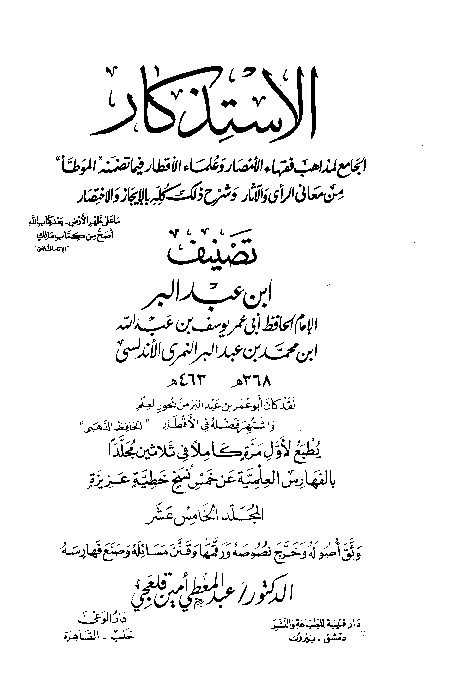 الاستذكار
الجامع لمذاهب فقهاء الأمصار وعلماء الأقطار فيما تضمنه "الموطأ"
من معاني الرأي والآثار وشرح ذلك كله بالإيجاز والاختصار
ما على ظهر الأرض - بعد كتاب الله
أصح من كتاب مالك
تصنيف
ابن عبد البر
الإمام الحافظ أبي عمر يوسف بن عبد الله
ابن محمد بن عبد البر النمري الأندلسي
٣٦٨هـ ٤٦٣هـ
لقد كان أبو عمر بن عبد البر من بحور العلم
واشتهر فضله في الأقطار "الحافظ الذهبي"
يطبع لأول مرة كاملا في ثلاثين مجلدا
بالفهارس العلمية عن خمس نسخ خطية عزيزة
المجلد الخامس عشر
وثق أصوله وخرج نصوصه ورقمها وقنن مسائله وصنع فهارسه
الدكتور/ عبد المعطي أمين قلعجي
دار قتيبة للطباعة والنشر
دمشق - بيروت
دار الوعي
حلب - القاهرة